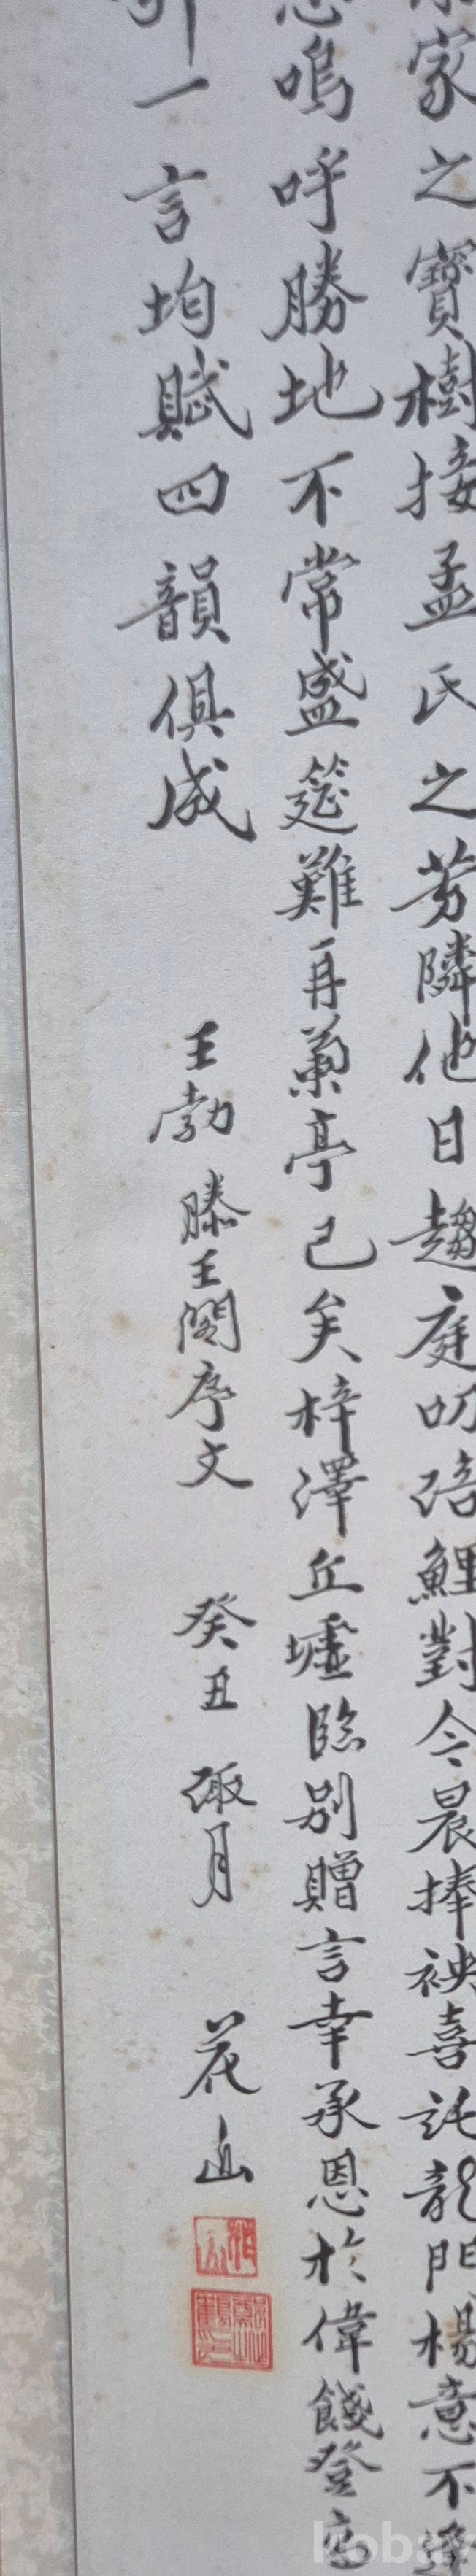 家之寶樹接孟氏之芳隣他日趨庭叨陪鯉對今晨捧袂喜託龍門楊意不逢
嗚呼勝地不常盛筵難再蘭亭已矣梓澤丘墟臨別贈言幸承恩於偉餞登
引一言均賦四韻俱成
王勃 滕王閣序文 癸丑 陬月 花山
kobay